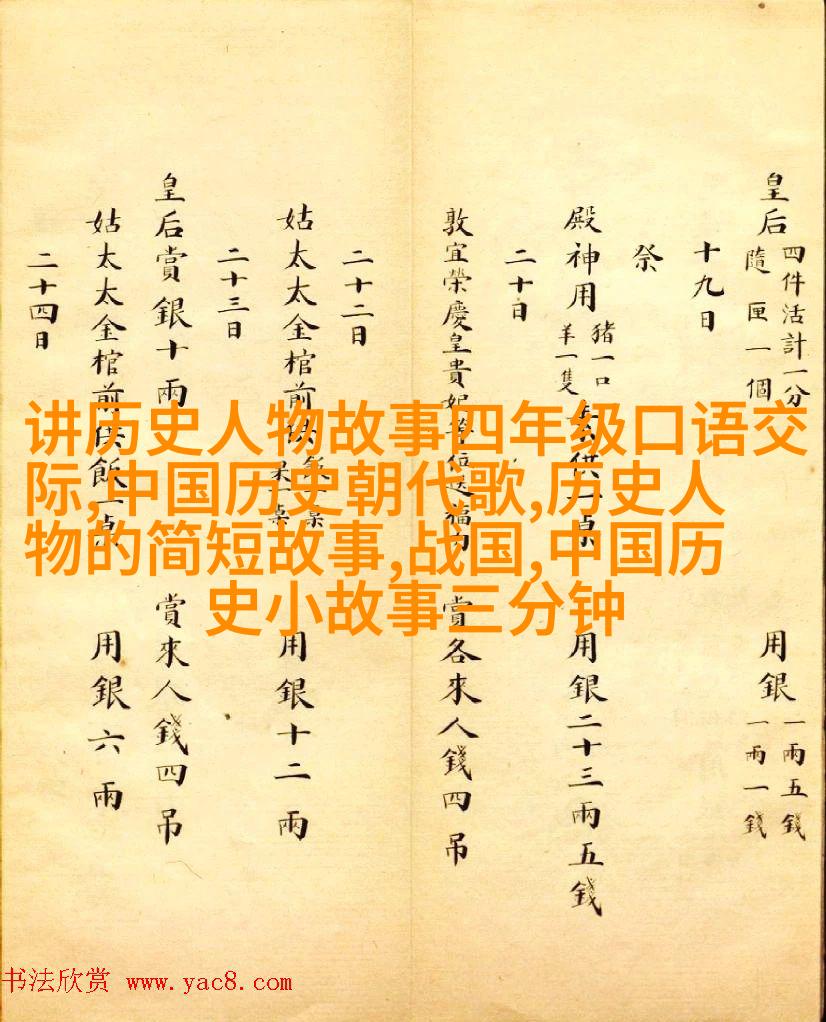 皇后 四件活計一分 隨匣一個 用銀 一兩五錢 一兩一錢
十九日
祭
殿神用 豬一口 羊一隻 供一桌 用銀二十三兩五錢
二十日
敦宜榮慶皇貴妃 賞各來人錢四吊
二十二日
姑太太金棺前供 用銀十二兩
二十三日
皇后賞銀十兩 賞來人錢四吊
姑太太金棺前供飯一桌 用銀六兩
二十四日
讲历史人物故事四年级口语交
际,中国历史朝代歌,历史人
物的简短故事,战国,中国历
史小故事三分钟
书法欣赏 www.yac8.com